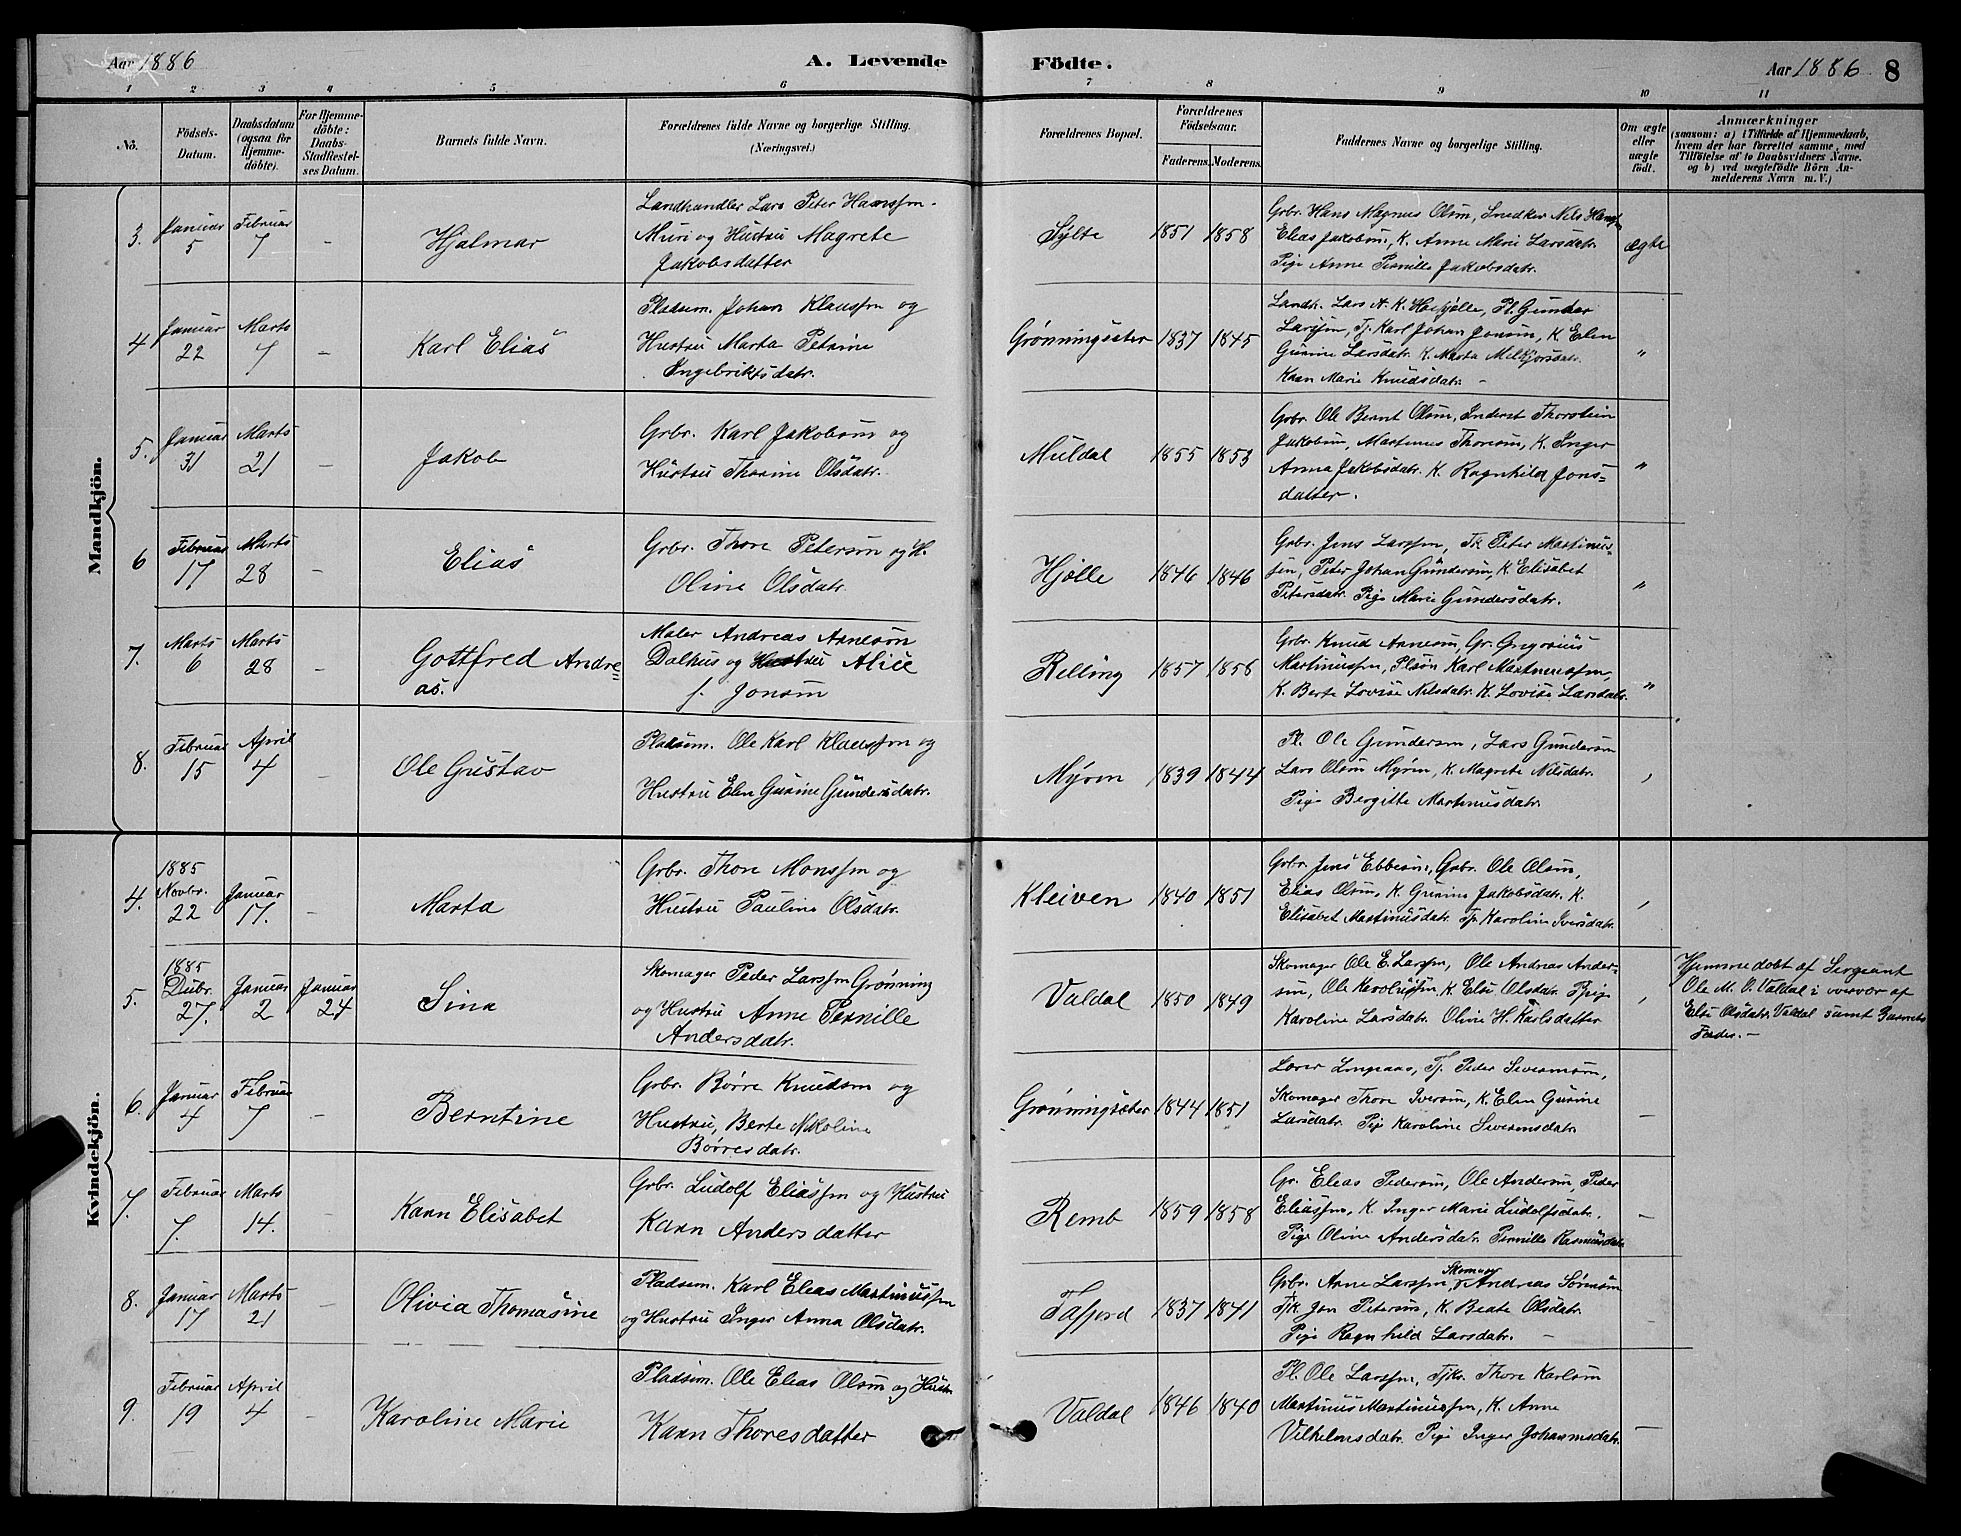 Aar 1886
A. Levende Födte.
Aar 1886. 8
1 2 3 4 5 6 7 8 9 10 11
No.
Födsels-Datum.
Daabsdatum (ogsaa for Hjemme-döbte).
For Hjemme-döbte: Daabs-Stadfæstel-ses Datum.
Barnets fulde Navn.
Forældrenes fulde Navne og borgerlige Stilling.
(Næringsvei.)
Forældrenes Bopæl.
Forældrenes Födselsaar.
Faderens. Moderens.
Faddernes Navne og borgerlige Stilling.
Om ægte eller uægte födt.
Anmærkninger
(saasom: a) i Tilfælde af Hjemmedaab,
hvem der har forrettet samme, med
Tilföielse af to Daabsvidners Navne.
og b) ved uægtefödte Börn An-
melderens Navn m. V.)
Mandkjön.
3. Januar 5 Februar 7 - Hjalmar
Landhandler Lars Peter Hansen
Muri og Hustru Magrete
Jakobsdatter
Sylte 1851 1858
Grbr. Hans Magnus Olsen, Snedker Nils Hansen
Elias Jakobsen, K. Anne Marie Larsdatr.
Pige Anne Pernille Jakobsdatr.
ægte
4 Januar 22 Marts 7 - Karl Elias
Pladsm. Johan Klaussen og
Hustru Marta Petrine
Ingebriktsdatr.
Grønningsæter 1837 1845
Landh. Lars A. K. Pl. Gunder
Larssen, Tj. Karl Johan Jonsen, K. Elen
Gurine Larsdatr. K. Marta
Karn Marie Knudsdatr. -
"
5. Januar 31 Marts 21 - Jakob
Grbr. Karl Jakobsen og
Hustru Thorine Olsdatr.
Muldal 1855 1853
Grbr. Ole Bernt Olsen, Inderst Thorstein
Jakobsen, Martinus Thoresen, K. Inger
Anna Jakobsdatr. K. Ragnhild Jons=
datter.
"
6 Februar 17 Marts 28 - Elias
Grbr. Thore Petersen og H.
Oline Olsdatr.
Hjølle 1846 1846
Grbr. Jens Larssen, Tk. Peter Martinus-
sen, Peter Johan Gundersen, K. Elisabet
Petersdatr. Pige Marie Gundersdatr.
"
7. Marts 6 Marts 28 - Gottfred Andre=
as.
Maler Andreas Arnesen
Dalhus og Hustru Alice
f. Jonsen
Relling 1857 1856
Grbr. Knud Arnesen, Gr. Gregorius
Martinussen, Plsøn Karl Martinussen,
K. Berte Lovise Nilsdatr. K. Lovise Larsdatr.
"
8. Februar 15 April 4 - Ole Gustav
Pladsm. Ole Karl Klaussen og
Hustru Elen Gurine Gundersdatr.
Myren 1839 1844
Pl. Ole Gundersen, Lars Gundersen
Lars Olsen Myren, K. Magrete Nilsdatr.
Pige Bergitte Martinusdatr.
Kvindekjön.
4. 1885 Novbr. 22 Januar 17. - Marta
Grbr. Thore Monssen og
Hustru Pauline Olsdatr.
Kleiven 1840 1851
Grbr. Jens Ebbesen, Grbr. Ole Olsen,
Elias Olsen, K. Gurine Jakobsdatr. K.
Elisabet Martinusdatr. Tp. Karoline Iversdatr.
5. 1885 Decbr. 27. Januar 2 Januar 24 Sina
Skomager Peder Larssen Grønning
og Hustru Anne Pernille
Andersdatr.
Valdal 1850 1849
Skomager Ole E. Larssen, Ole Andreas Ander-
sen, Ole Karolussen, K. Else Olsdatr. Pige
Karoline Larsdatr. Oline H. Karlsdatter
Hjemmedøbt af Sergeant
Ole M. O. Valdal i overvær af
Else Olsdatr. Valdal samt Barnets
Fader. -
6. Januar 4 Februar 7 - Berntine
Grbr. Børre Knudsen og
Hustru, Berte Nikoline
Børresdatr.
Grønningsæter 1844 1851
Lærer Lingaas, Tj. Peder Sivertsen,
Skomager Thore Iversen, K. Elen Gurine
Larsdatr. Pige Karoline Sivertsdatr.
-
7. Februar 7. Marts 14. - Karn Elisabet
Grbr. Ludolf Eliassen og Hustru
Karn Andersdatter
Remb 1859 1858
Gr. Elias Pedersen, Ole Andersen, Peder
Eliassen, K. Inger Marie Ludolfsdatr.
Pige Oline Andersdatr. Pernille Rasmusdatr.
-
8. Januar 17 Marts 21 - Olivia Thomasine
Pladsm. Karl Elias Martinussen
og Hustru Inger Anna Olsdatr.
Tafjord 1837 1841
Grbr. Arne Larssen, Skomager Andreas
Tjk. Jon Petersen, K. Beate Olsdatr.
Pige Ragnhild Larsdatr. -
-
9. Februar 19 April 4 - Karoline Marie
Pladsm. Ole Elias Olsen og Hustru
Karn Thoresdatter
Valdal 1846 1840
Pl. Ole Larssen, Tjkr. Thore Karlsen
Martinus Martinussen, K. Anne
Vilhelmsdatr. Pige Inger Johannsdatr.
-